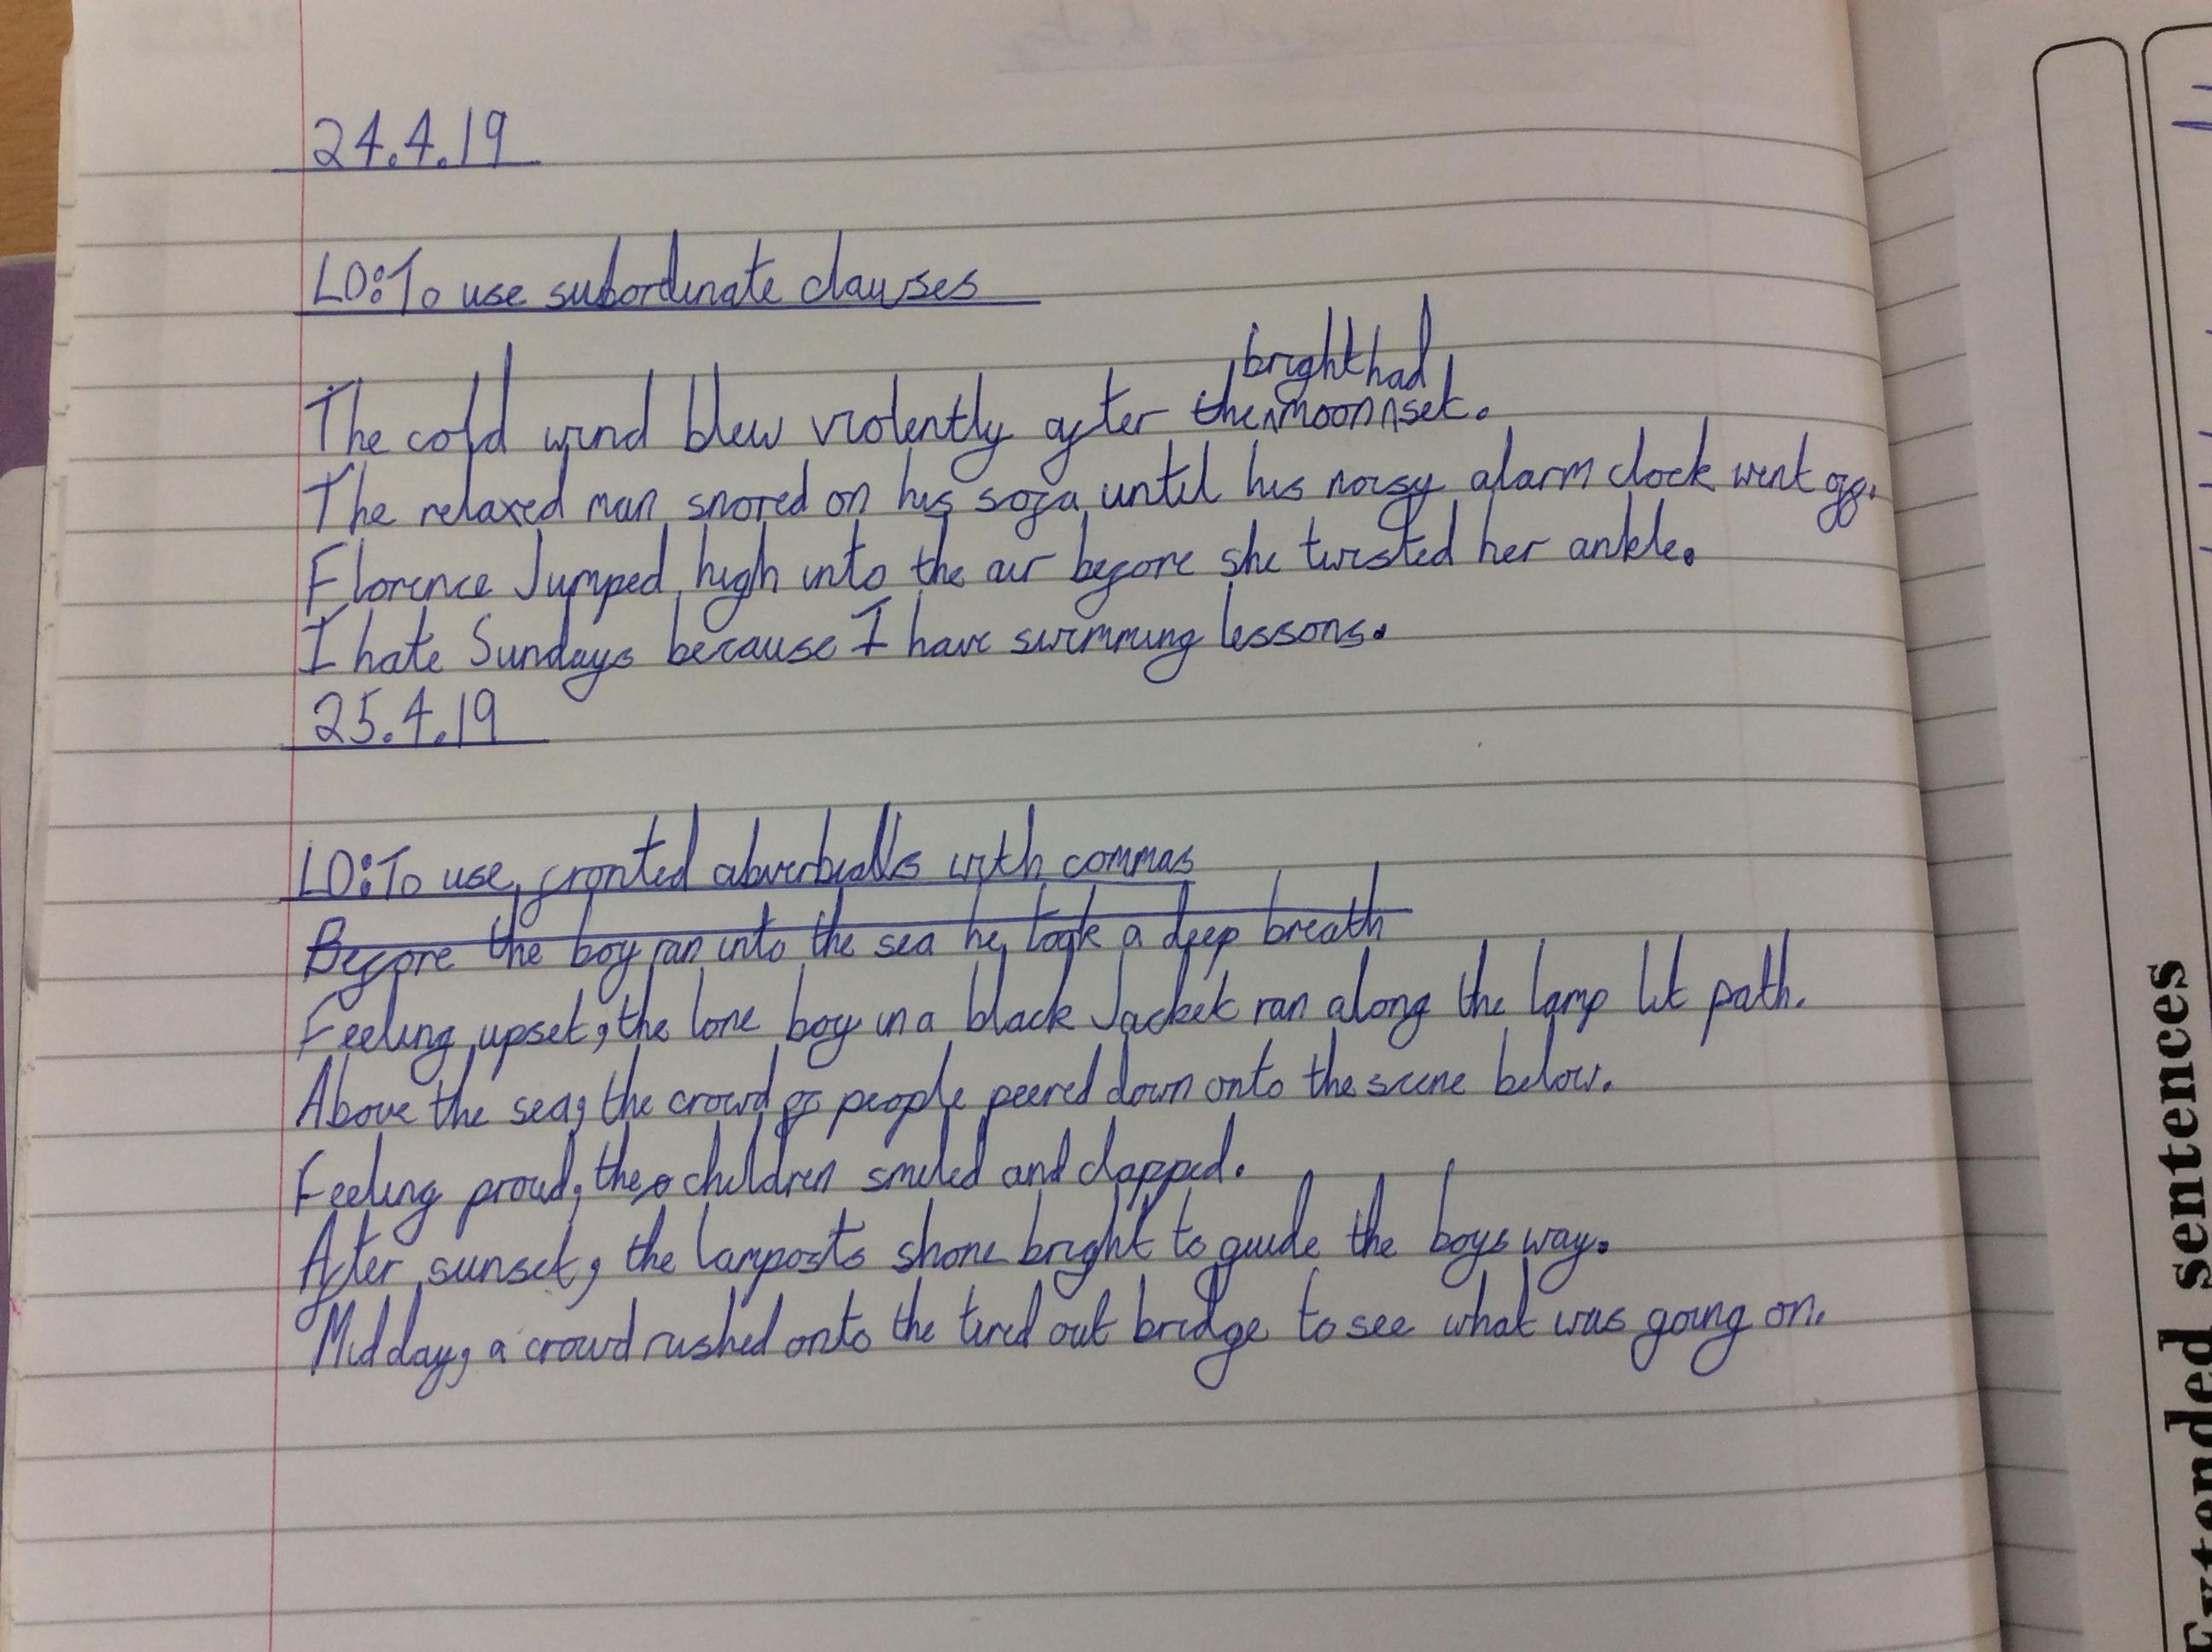 24.4.19
LO: To use subordinate clauses
The cold wind blew violently after the bright moon had set.
The relaxed man snored on his sofa until his noisy alarm clock went off.
Florence Jumped high into the air before she twisted her ankle.
I hate Sundays because I have swimming lessons.
25.4.19
LO: To use fronted abverbialls with commas
Before the boy ran into the sea he took a deep breath
Feeling upset, the lone boy in a black Jacket ran along the lamp lit path.
Above the sea, the crowd of people peered down onto the scene below.
Feeling proud, the children smiled and clapped.
After sunset, the lamposts shone bright to guide the boys way.
Mid day, a crowd rushed onto the tired out bridge to see what was going on.
Extended sentences